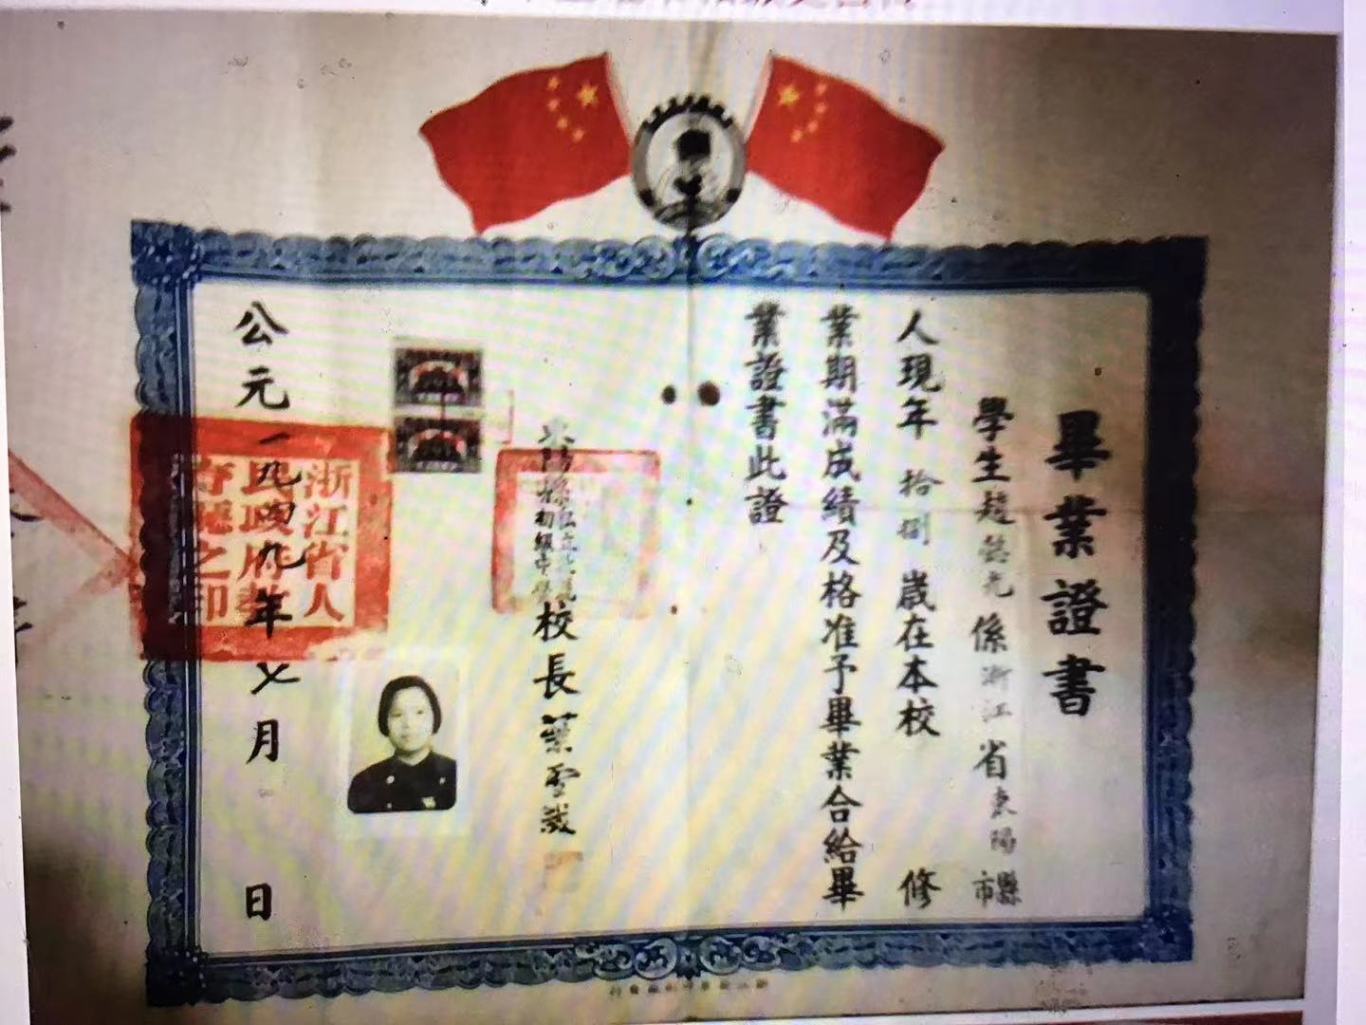 畢業證書
學生趙懿光係浙江省東陽縣市
人現年拾捌歲在本校修
業期滿成績及格准予畢業合給畢
業證書此證
東陽縣私立
初級中學
校長葉雲
公元一九四九年七月日
浙江省人
民政府教
育廳之印